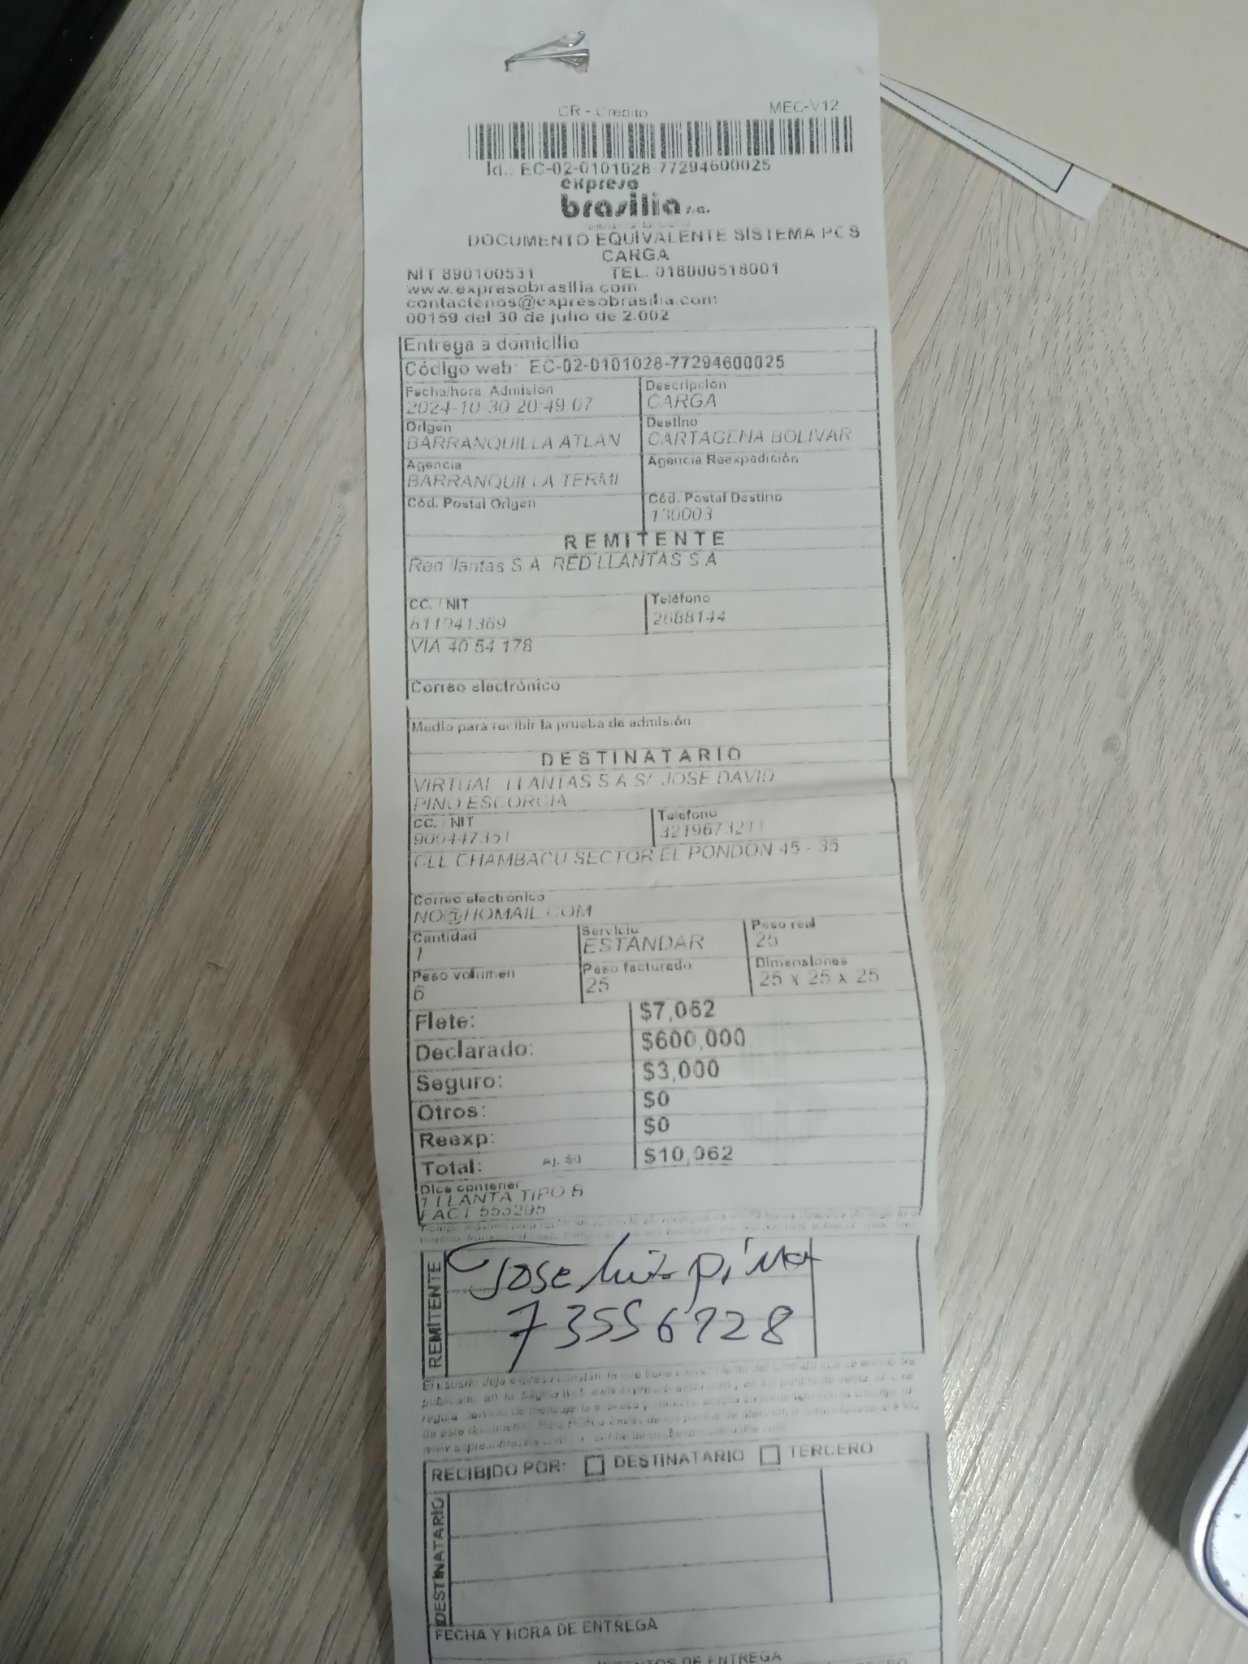 CR - Credito MEC-V12
Id.: EC-02-0101028-77294600025
expreso
brasilia s.a.
DOCUMENTO EQUIVALENTE SISTEMA POS
CARGA
NIT 890100531 TEL. 018000518001
www.expresobrasilia.com
contactenos@expresobrasilia.com
00159 del 30 de julio de 2.002
Entrega a domicilio
Código web: EC-02-0101028-77294600025
Fecha/hora Admisión Descripción
2024-10-30 20:49:07 CARGA
Origen Destino
BARRANQUILLA ATLAN CARTAGENA BOLIVAR
Agencia Agencia Reexpedición
BARRANQUILLA TERMI
Cód. Postal Origen Cód. Postal Destino
130003
REMITENTE
Red llantas S.A RED LLANTAS S A
CC. / NIT Teléfono
811941369 2688144
VIA 40 54 178
Correo electrónico
Medio para recibir la prueba de admisión
DESTINATARIO
VIRTUAL LLANTAS S A S/ JOSE DAVID
PINO ESCORCIA
CC. / NIT Teléfono
900447351
CLL CHAMBACU SECTOR EL PONDON 45 - 35
Correo electrónico
NO@HOMAIL.COM
Cantidad Servicio Peso real
1 ESTANDAR 25
Peso volumen Peso facturado Dimensiones
6 25 25 x 25 x 25
Flete: $7,062
Declarado: $600,000
Seguro: $3,000
Otros: $0
Reexp: $0
Total: $10,062
Dice contener
1 LLANTA TIPO B
FACT 553295
REMITENTE
JOSE luiz pina
73556728
RECIBIDO POR: DESTINATARIO TERCERO
DESTINATARIO
FECHA Y HORA DE ENTREGA
INTENTOS DE ENTREGA